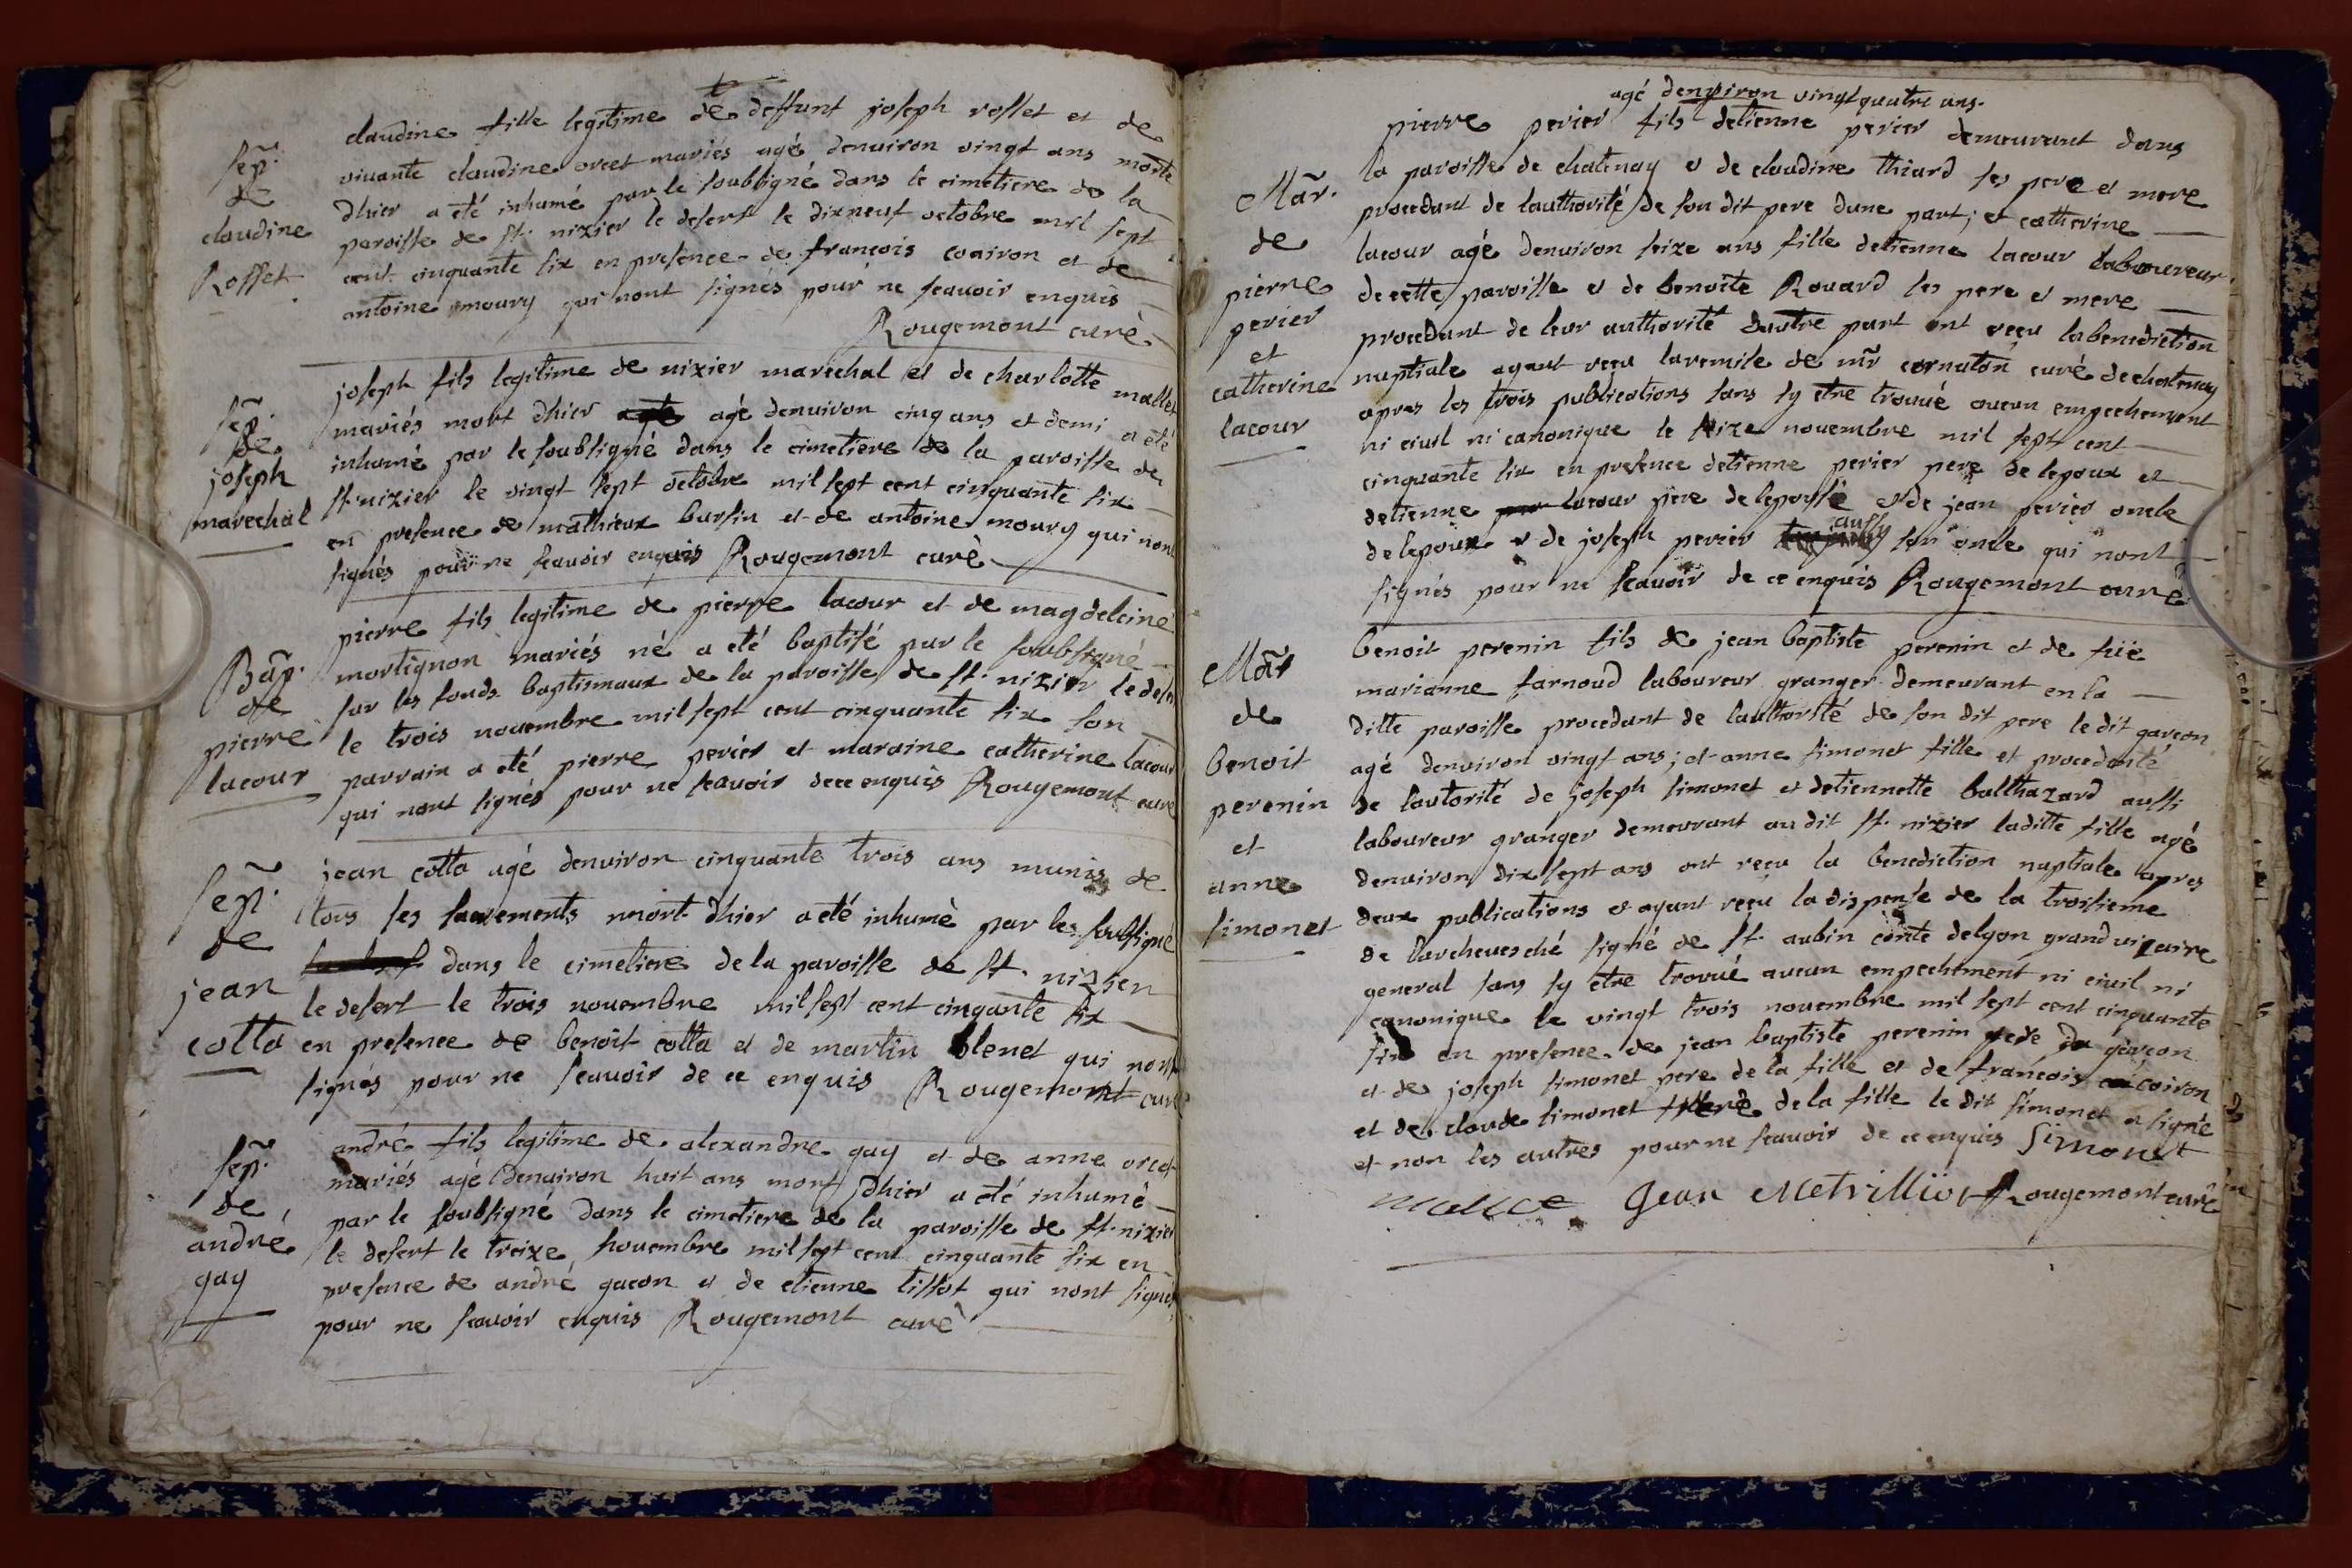 Sep.
de
claudine
Rosset
claudine fille legitime de deffunt joseph rosset et de
vivante claudine orcet mariés agé denviron vingt ans morte
dhier a eté inhumé par le soubsigné dans le cimetiere de la
paroisse de st. nizier le desert le dixneuf octobre mil sept
cent cinquante six en presence de francois coairon et de
antoine moury qui nont signés pour ne scavoir enquis
Rougemont curé
Sep.
de
joseph
marechal
joseph fils legitime de nizier marechal et de charlotte mallet
mariés mort dhier agé denviron cinq ans et demi a eté
inhumé par le soubsigné dans le cimetiere de la paroisse de
st. nizier le vingt sept octobre mil sept cent cinquante six
en presence de mathieux bursin et de antoine moury qui nont
signés pour ne scavoir enquis Rougemont curé
Bap.
de
pierre
lacour
pierre fils legitime de pierre lacour et de magdeleine
mortignon mariés né a eté baptisé par le soubsigné
sur les fonds baptismaux de la paroisse de st. nizier le desert
le trois novembre mil sept cent cinquante six son
parrain a eté pierre perier et maraine catherine lacour
qui nont signés pour ne scavoir dece enquis Rougemont curé
Sep.
de
jean
cotta
jean cotta agé denviron cinquante trois ans munis de
tous ses sacrements mort dhier a eté inhumé par le soubsigné
dans le cimetiere de la paroisse de st. nizier
le desert le trois novembre mil sept cent cinquante six
en presence de benoit cotta et de martin blenet qui nont
signés pour ne scavoir de ce enquis Rougemont curé
Sep.
de
andré
gay
andré fils legitime de alexandre gay et de anne orcet
mariés agé denviron huit ans mort dhier a eté inhumé
par le soubsigné dans le cimetiere de la paroisse de st. nizier
le desert le treize novembre mil sept cent cinquante six en
presence de andré gacon et de etienne tissot qui nont signés
pour ne scavoir enquis Rougemont curé
Mar.
de
pierre
perier
et
catherine
lacour
agé denviron vingt quatre ans.
pierre perier fils detienne perier demeurant dans
la paroisse de chatenay et de claudine thiard ses pere et mere
procedant de lauthorité de son dit pere dune part; et catherine
lacour agé denviron seize ans fille detienne lacour laboureur
de cette paroisse et de benoite Rouard ses pere et mere
procedant de leur authorité dautre part ont reçu la benediction
nuptiale ayant reçu la remise de mr cornaton curé de chatenay
apres les trois publications sans sy etre trouué aucun empechement
ni civil ni canonique le seize novembre mil sept cent
cinquante six en presence detienne perier pere de lepoux et
detienne lacour pere de lepouse et de jean perier oncle
de lepoux et de joseph perier aussy son oncle qui nont
signés pour ne scavoir de ce enquis Rougemont curé
Mar
de
benoit
perenin
et
anne
simonet
benoit perenin fils de jean baptiste perenin et de füe
marianne farnoud laboureur granger demeurant en la
ditte paroisse procedant de lauthorité de son dit pere le dit garcon
agé denviron vingt ans; et anne simonet fille et procedante
de lautorité de joseph simonet et detiennette balthazard aussi
laboureur granger demeurant au dit st. nizier laditte fille agé
denviron dix sept ans ont reçu la benediction nuptiale apres
deux publications et ayant reçu la dispense de la troisieme
de l'archevesché signé de st. aubin conte de lyon grand vicaire
general sans sy etre trouué aucun empechement ni civil ni
canonique le vingt trois novembre mil sept cent cinquante
six en presence de jean baptiste perenin pere du garcon
et de joseph simonet pere de la fille et de francois coiron
et de claude simonet frere de la fille le dit simonet a signé
et non les autres pour ne scavoir de ce enquis Simonet
Jean Rougemont curé